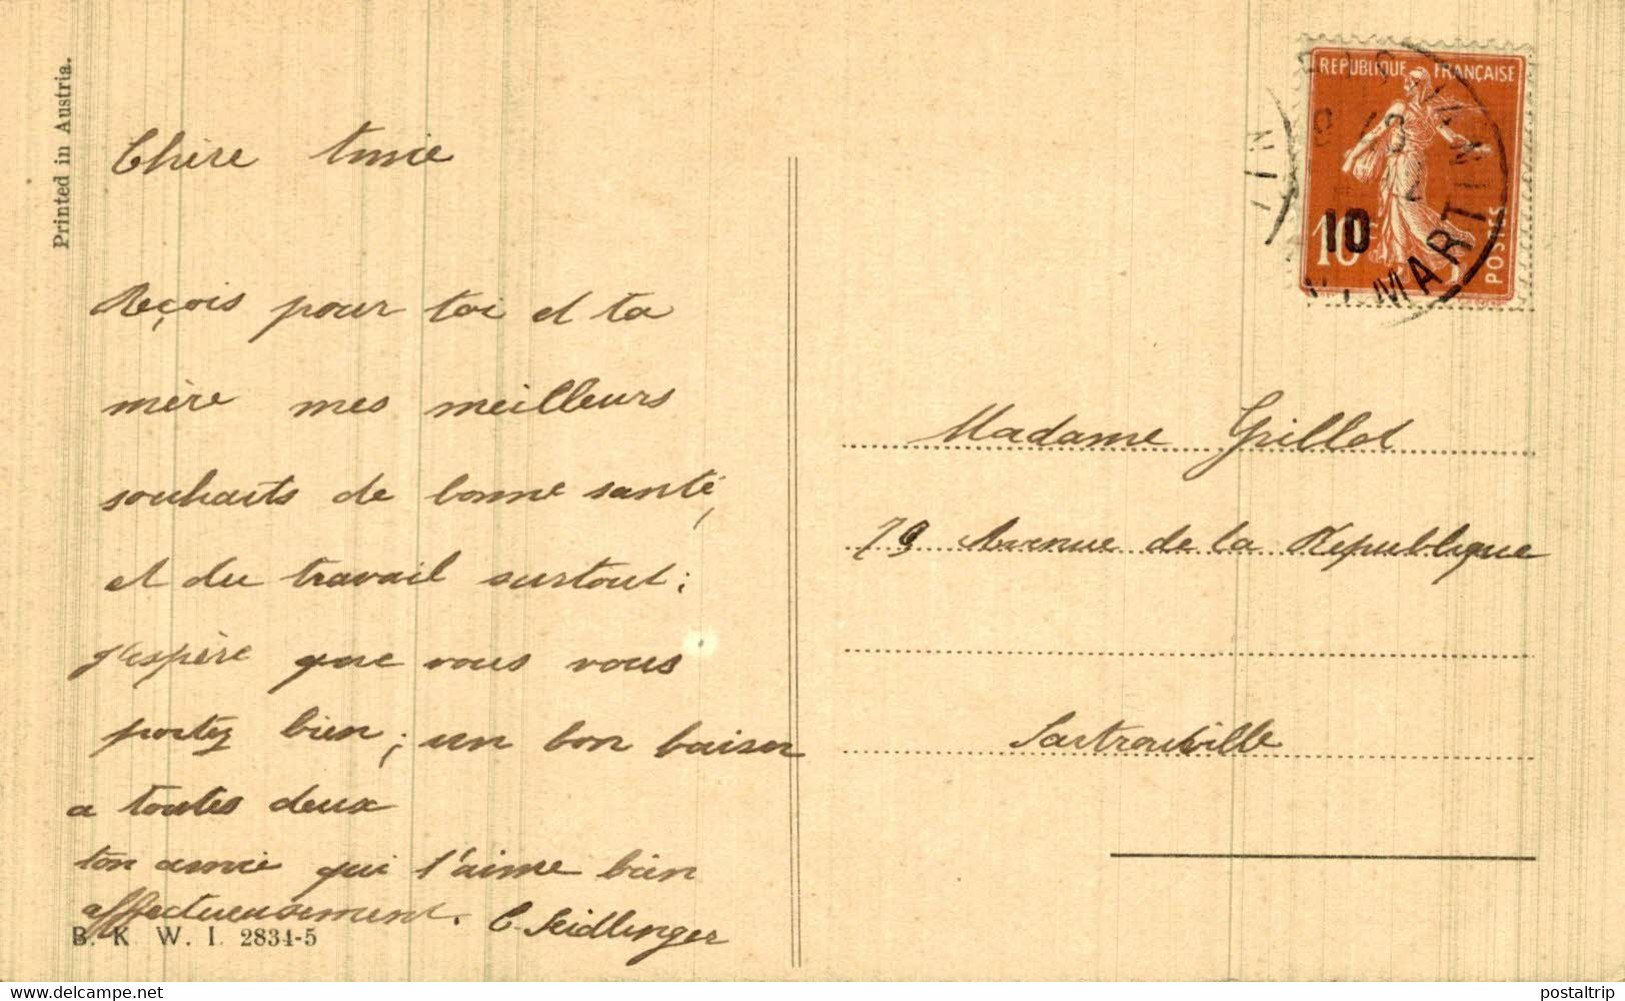 Printed in Austria.
Chère Amie
Reçois pour toi et ta
mère mes meilleurs
souhaits de bonne santé,
et du travail surtout ;
j'espère que vous vous
portez bien ; un bon baiser
a toutes deux
ton amie qui t'aime bien
affectueusement. C. Seidlinger
B. K. W. I. 2834-5
REPUBLIQUE FRANÇAISE
10
10
POSTES
MARTIN
Madame Grillot
79 Avenue de la République
Sartrouville
www.delcampe.net
postaltrip